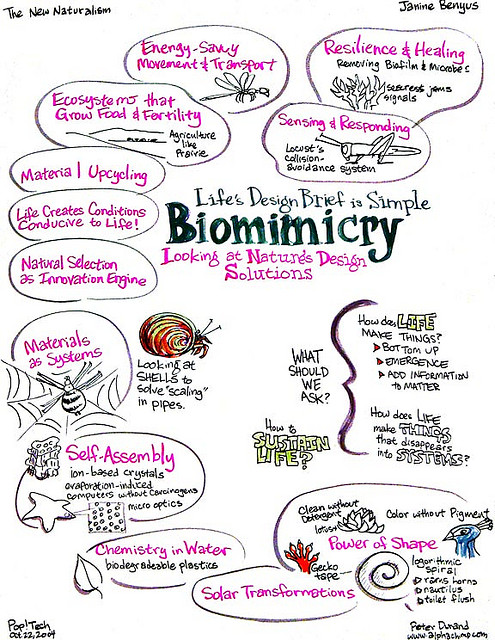 The New Naturalism
Janine Benyus
Energy-Savvy
Movement & Transport
Resilience & Healing
Removing Biofilm & Microbes
seacrest jams
signals
Ecosystems that
Grow Food & Fertility
Agriculture
like
Prairie
Sensing & Responding
Locust's
collision-
avoidance system
Material Upcycling
Life Creates Conditions
Conducive to Life!
Natural Selection
as Innovation Engine
Life's Design Brief is Simple
Biomimicry
Looking at Nature's Design
Solutions
Materials
as Systems
Looking at
SHELLS to
solve "scaling"
in pipes.
WHAT
SHOULD
WE
ASK?
How does LIFE
MAKE THINGS?
BOTTOM UP
EMERGENCE
ADD INFORMATION
to MATTER
How does LIFE
make THINGS
that disappears
into SYSTEMS?
How to
SUSTAIN
LIFE?
Self-Assembly
ion-based crystals
evaporation-induced
computers without Carcinogens
micro optics
Chemistry in Water
biodegradeable plastics
Solar Transformations
Clean without
Detergent
lotus
Color without Pigment
Power of Shape
Gecko
tape
logorithmic
spiral
rams horns
nautilus
toilet flush
Pop!Tech
Oct 22, 2004
Peter Durand
www.alphachimp.com